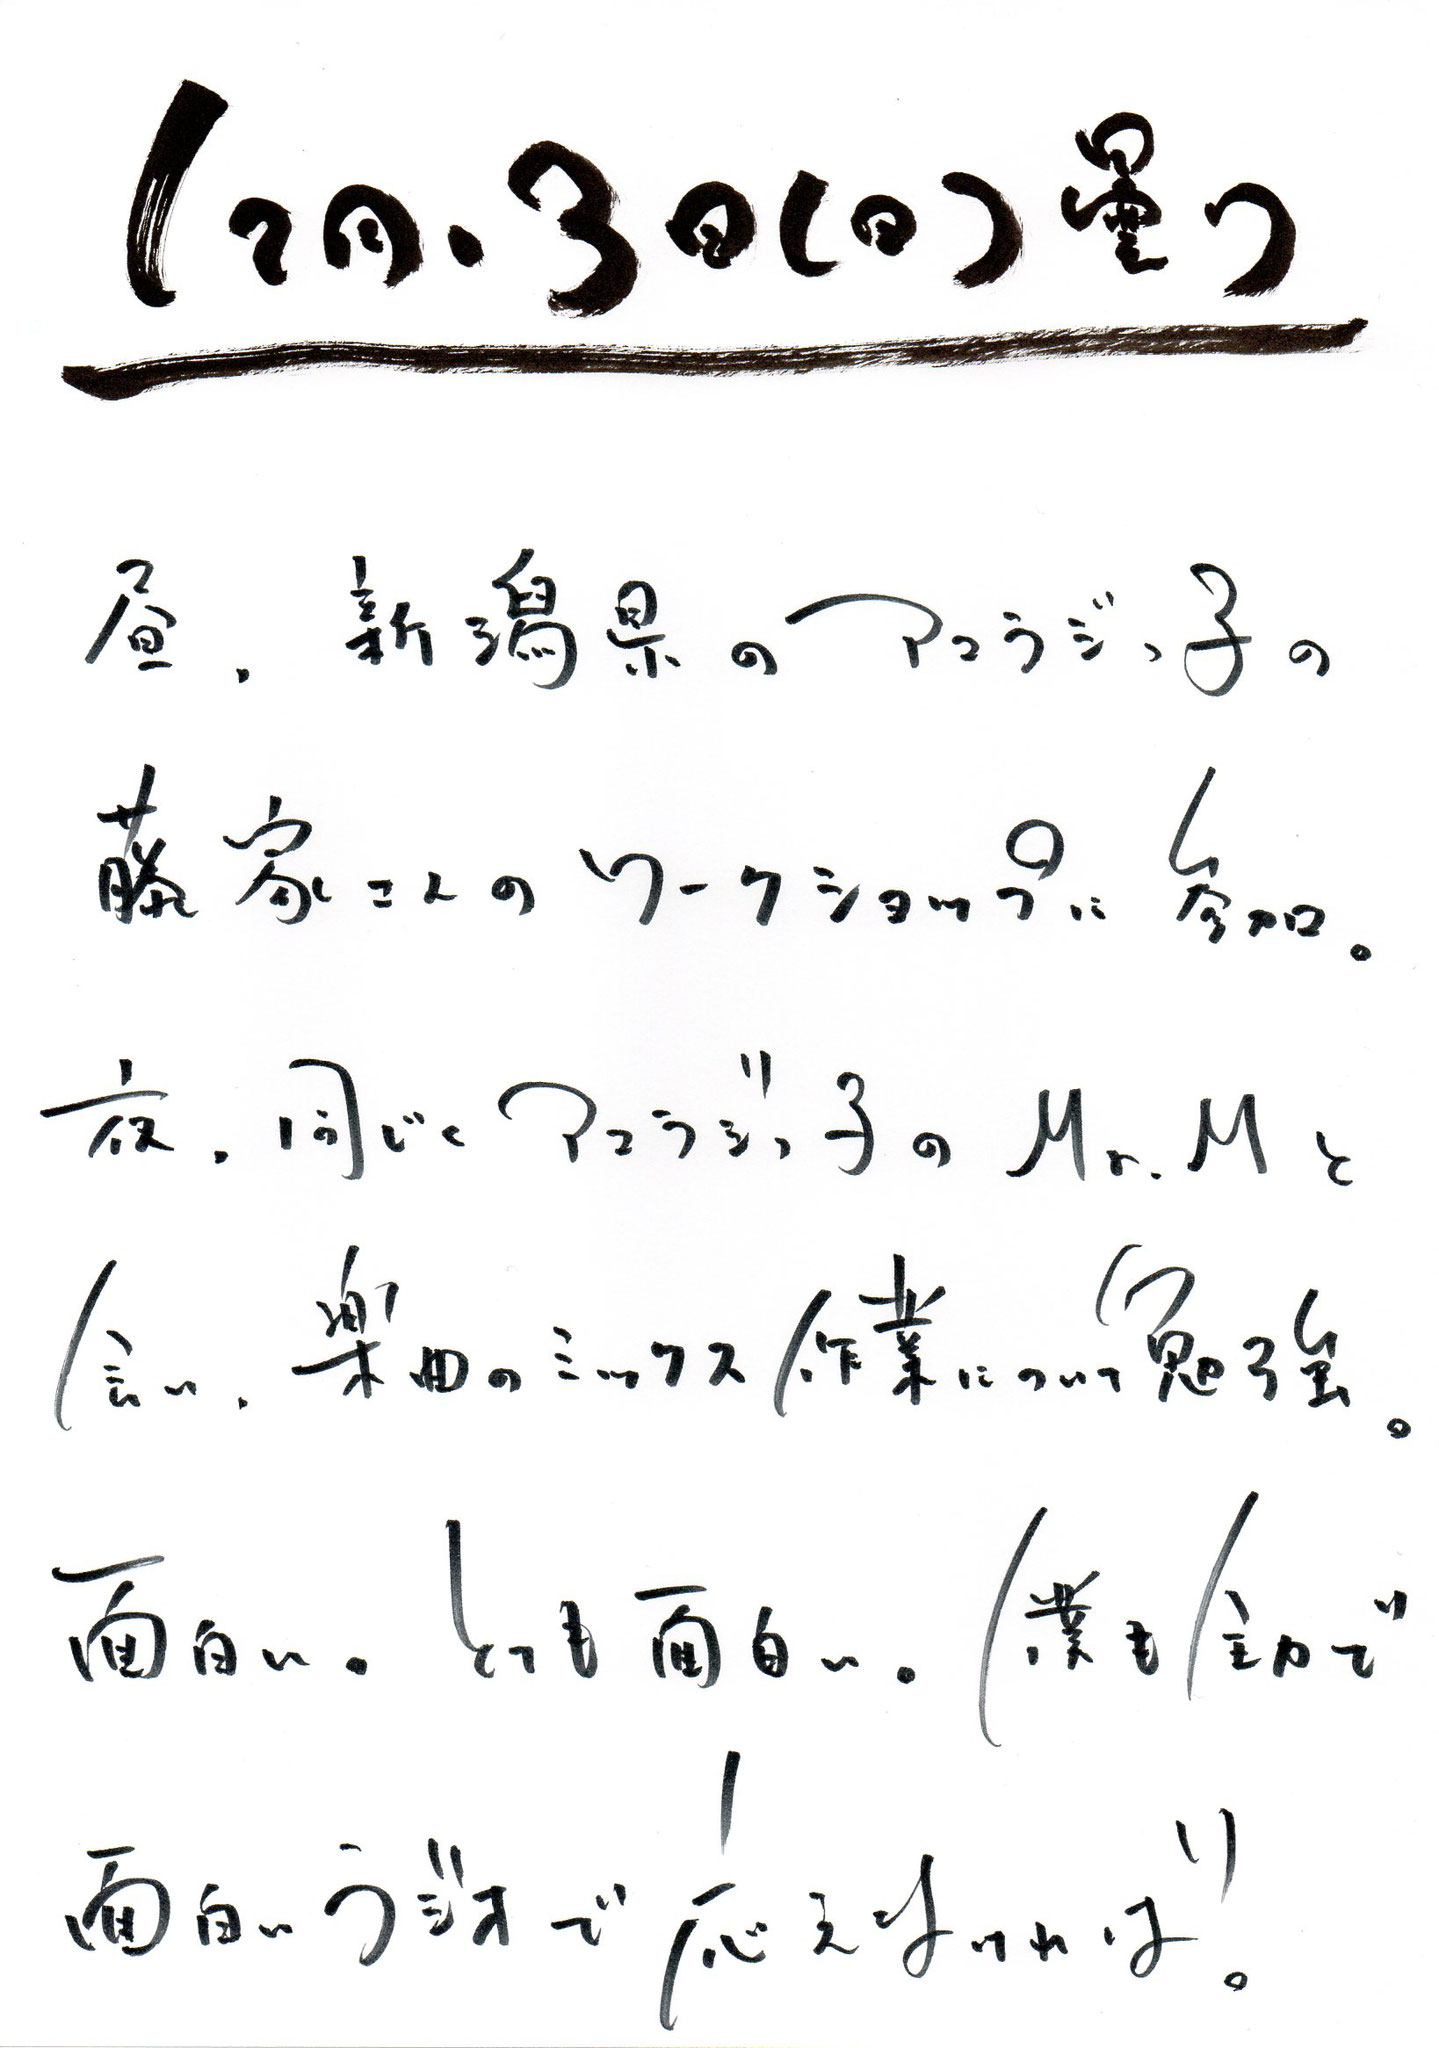 12月.3日(日)曇り
昼、新潟県のアコラジっ子の
藤家さんのワークショップに参加。
夜、同じくアコラジっ子のMr.Mと
会い、楽曲のミックス作業について勉強。
面白い。とても面白い。僕も全力で
面白いラジオで応えなければ。